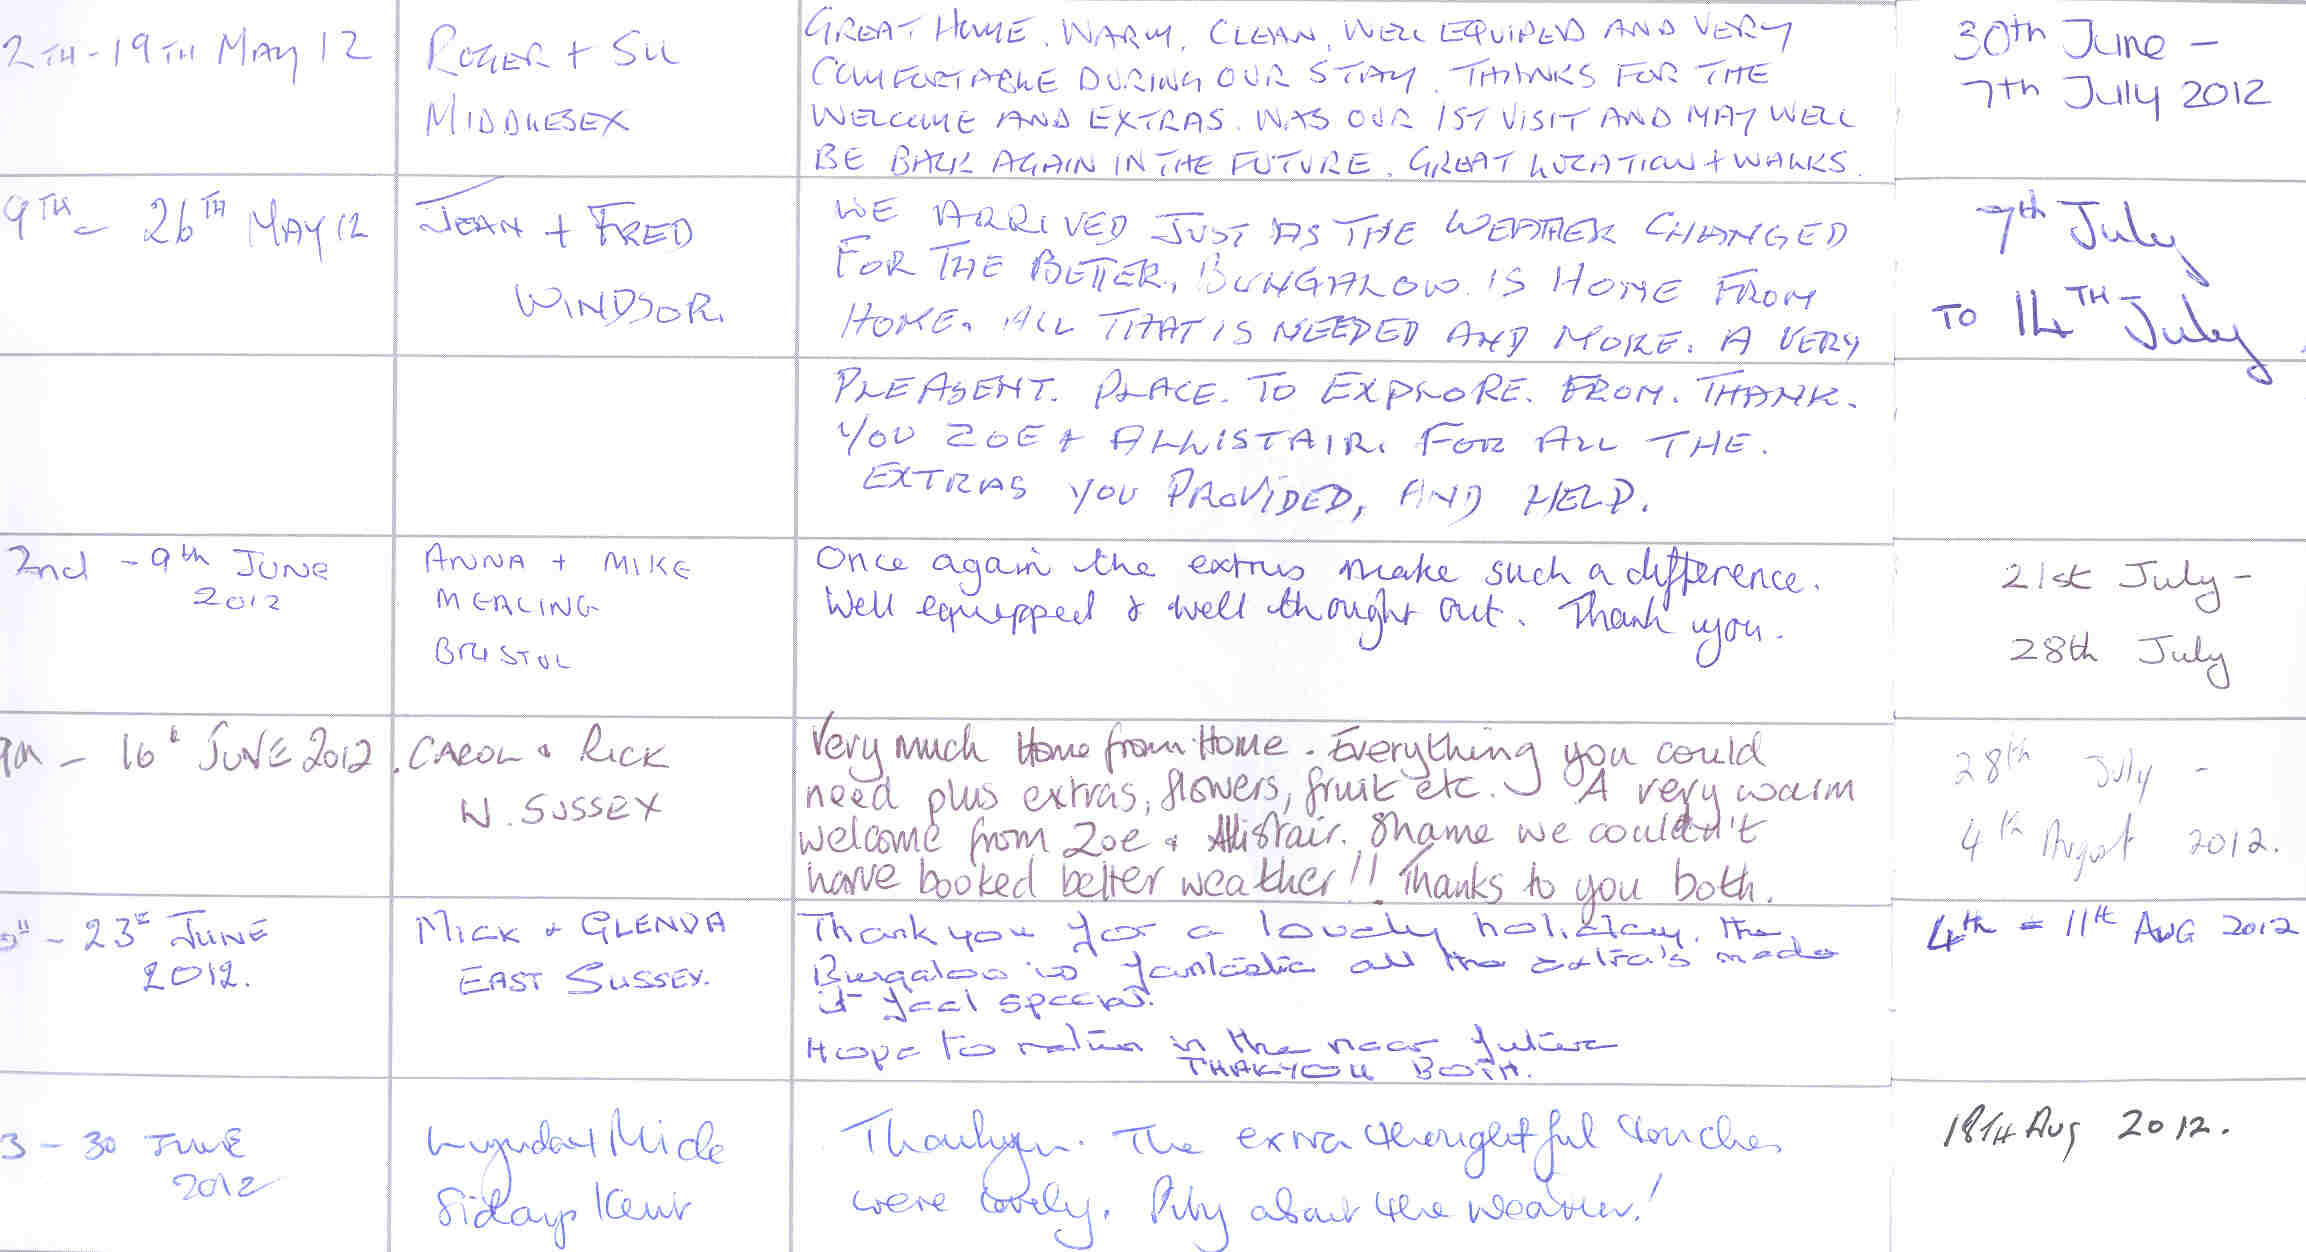 2TH-19TH MAY 12
ROGER + SU
MIDDLESEX
GREAT HOME. WARM, CLEAN, WELL EQUIPED AND VERY
COMFORTABLE DURING OUR STAY. THANKS FOR THE
WELCOME AND EXTRAS. WAS OUR 1ST VISIT AND MAY WELL
BE BACK AGAIN IN THE FUTURE. GREAT LOCATION + WALKS.
30th June -
7th July 2012
9TH - 26TH MAY 12
JEAN + FRED
WINDSOR.
WE ARRIVED JUST AS THE WEATHER CHANGED
FOR THE BETTER, BUNGALOW IS HOME FROM
HOME. ALL THAT IS NEEDED AND MORE. A VERY
7th July
TO 14TH July
PLEASENT. PLACE. TO EXPLORE. FROM. THANK.
YOU ZOE + ALLISTAIR. FOR ALL THE.
EXTRAS YOU PROVIDED, AND HELP.
2nd - 9th JUNE
2012
ANNA + MIKE
MEALING
BRISTOL
Once again the extras make such a difference.
Well equipped & well thought out. Thank you.
21st July -
28th July
- 16th JUNE 2012
CAROL & RICK
W. SUSSEX
Very much Home from Home. Everything you could
need plus extras, flowers, fruit etc. A very warm
welcome from Zoe & Allistair. Shame we couldn't
have booked better weather!! Thanks to you both.
28th July -
4th August 2012.
- 23rd JUNE
2012.
MICK & GLENDA
EAST SUSSEX.
Thank you for a lovely holiday. the
Bungaloo is fantastic all the extra's made
it feel special.
Hope to return in the near future
THAKYOU BOTH.
4th = 11th AUG 2012
3 - 30 JUNE
2012
Lynda + Mick
Sidcup Kent
Thankyou. The extra thoughtful touches
were lovely. Pity about the weather!
18TH Aug 2012.